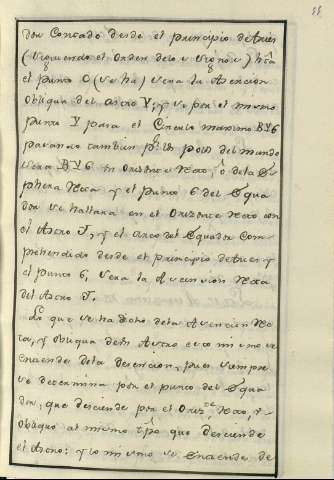 dor Contado desde el principio de Aries
(siguiendo el orden de los Signos) hta
el punto O (se ha) sera la Asencion
obliqua del Astro Y, y si por el mismo
punto Y para el Circulo maximo BY6
pasando tambien pr. los polos del mundo
sera BY6 el Orizonte Recto, ô de la Es
phera Recta y el punto 6 del Equa
dor se hallara en el Orizonte Recto con
el Astro Y, y el arco del Equador Com
prehendido desde el principio de Aries y
el punto 6, sera la Ascension Recta
del Astro Y.
Lo que se ha dicho de la Asencion Rec
ta, y obliqua de los Astros eso mismo se
entiende de la desencion, pues siempre
se determina por el punto del Equa
dor, que desciende por el Orizte. Recto, ô
obliquo al mismo tpo. que desciende
el Astro: y lo mismo se Entiende de